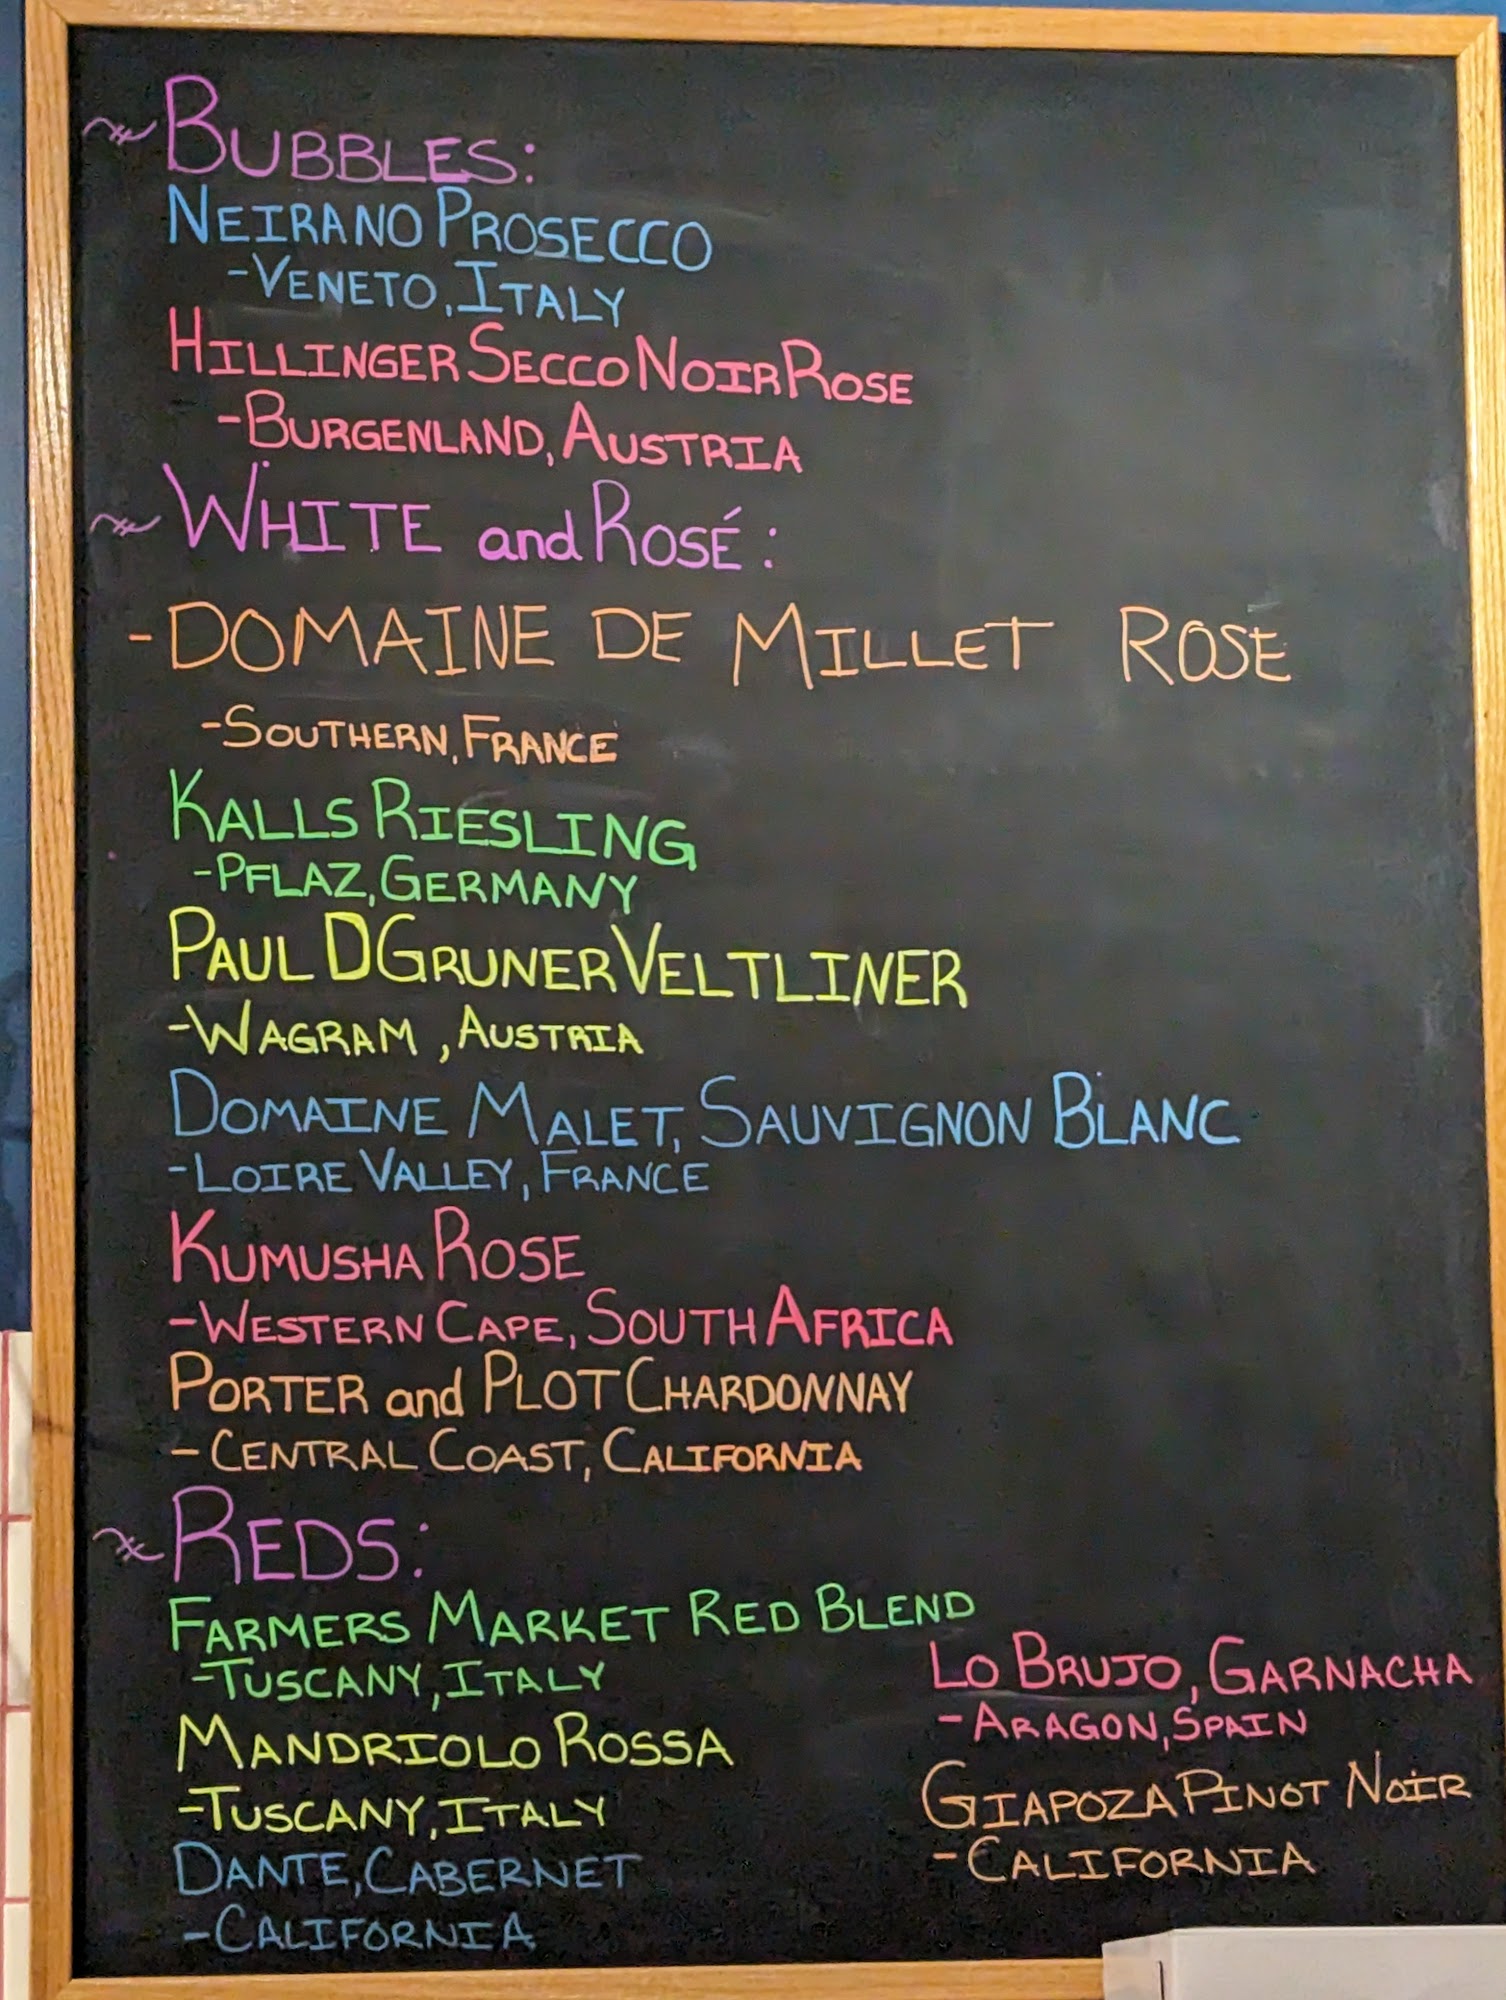 BUBBLES:
NEIRANO PROSECCO
-VENETO, ITALY
HILLINGER SECCO NOIR ROSE
-BURGENLAND, AUSTRIA
WHITE and ROSÉ:
-DOMAINE DE MILLET ROSE
-SOUTHERN, FRANCE
KALLS RIESLING
-PFLAZ, GERMANY
PAUL D GRUNER VELTLINER
-WAGRAM, AUSTRIA
DOMAINE MALET, SAUVIGNON BLANC
-LOIRE VALLEY, FRANCE
KUMUSHA ROSE
-WESTERN CAPE, SOUTH AFRICA
PORTER and PLOT CHARDONNAY
-CENTRAL COAST, CALIFORNIA
REDS:
FARMERS MARKET RED BLEND
-TUSCANY, ITALY
MANDRIOLO ROSSA
-TUSCANY, ITALY
DANTE, CABERNET
-CALIFORNIA
LO BRUJO, GARNACHA
-ARAGON, SPAIN
GIAPOZA PINOT NOIR
-CALIFORNIA